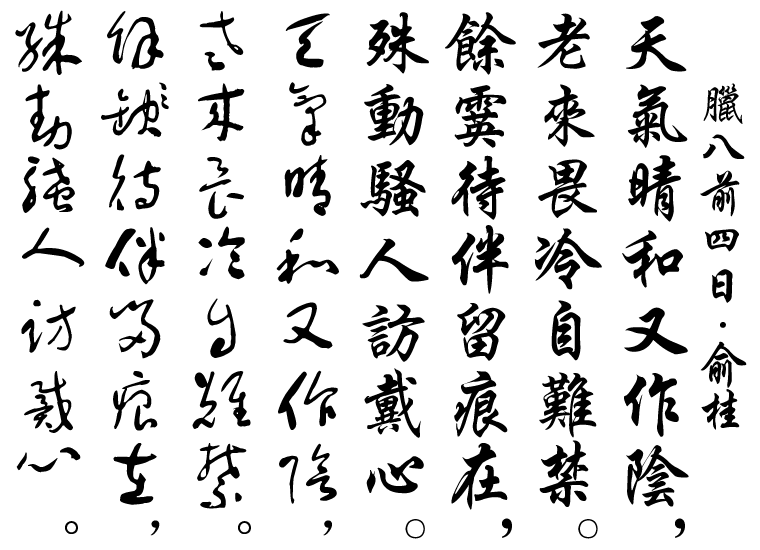 臘八前四日·俞桂
天氣晴和又作陰，
老來畏冷自難禁。
餘霙待伴留痕在，
殊動騷人訪戴心。
天氣晴和又作陰，
老來畏冷自難禁。
餘霙待伴留痕在，
殊動騷人訪戴心。